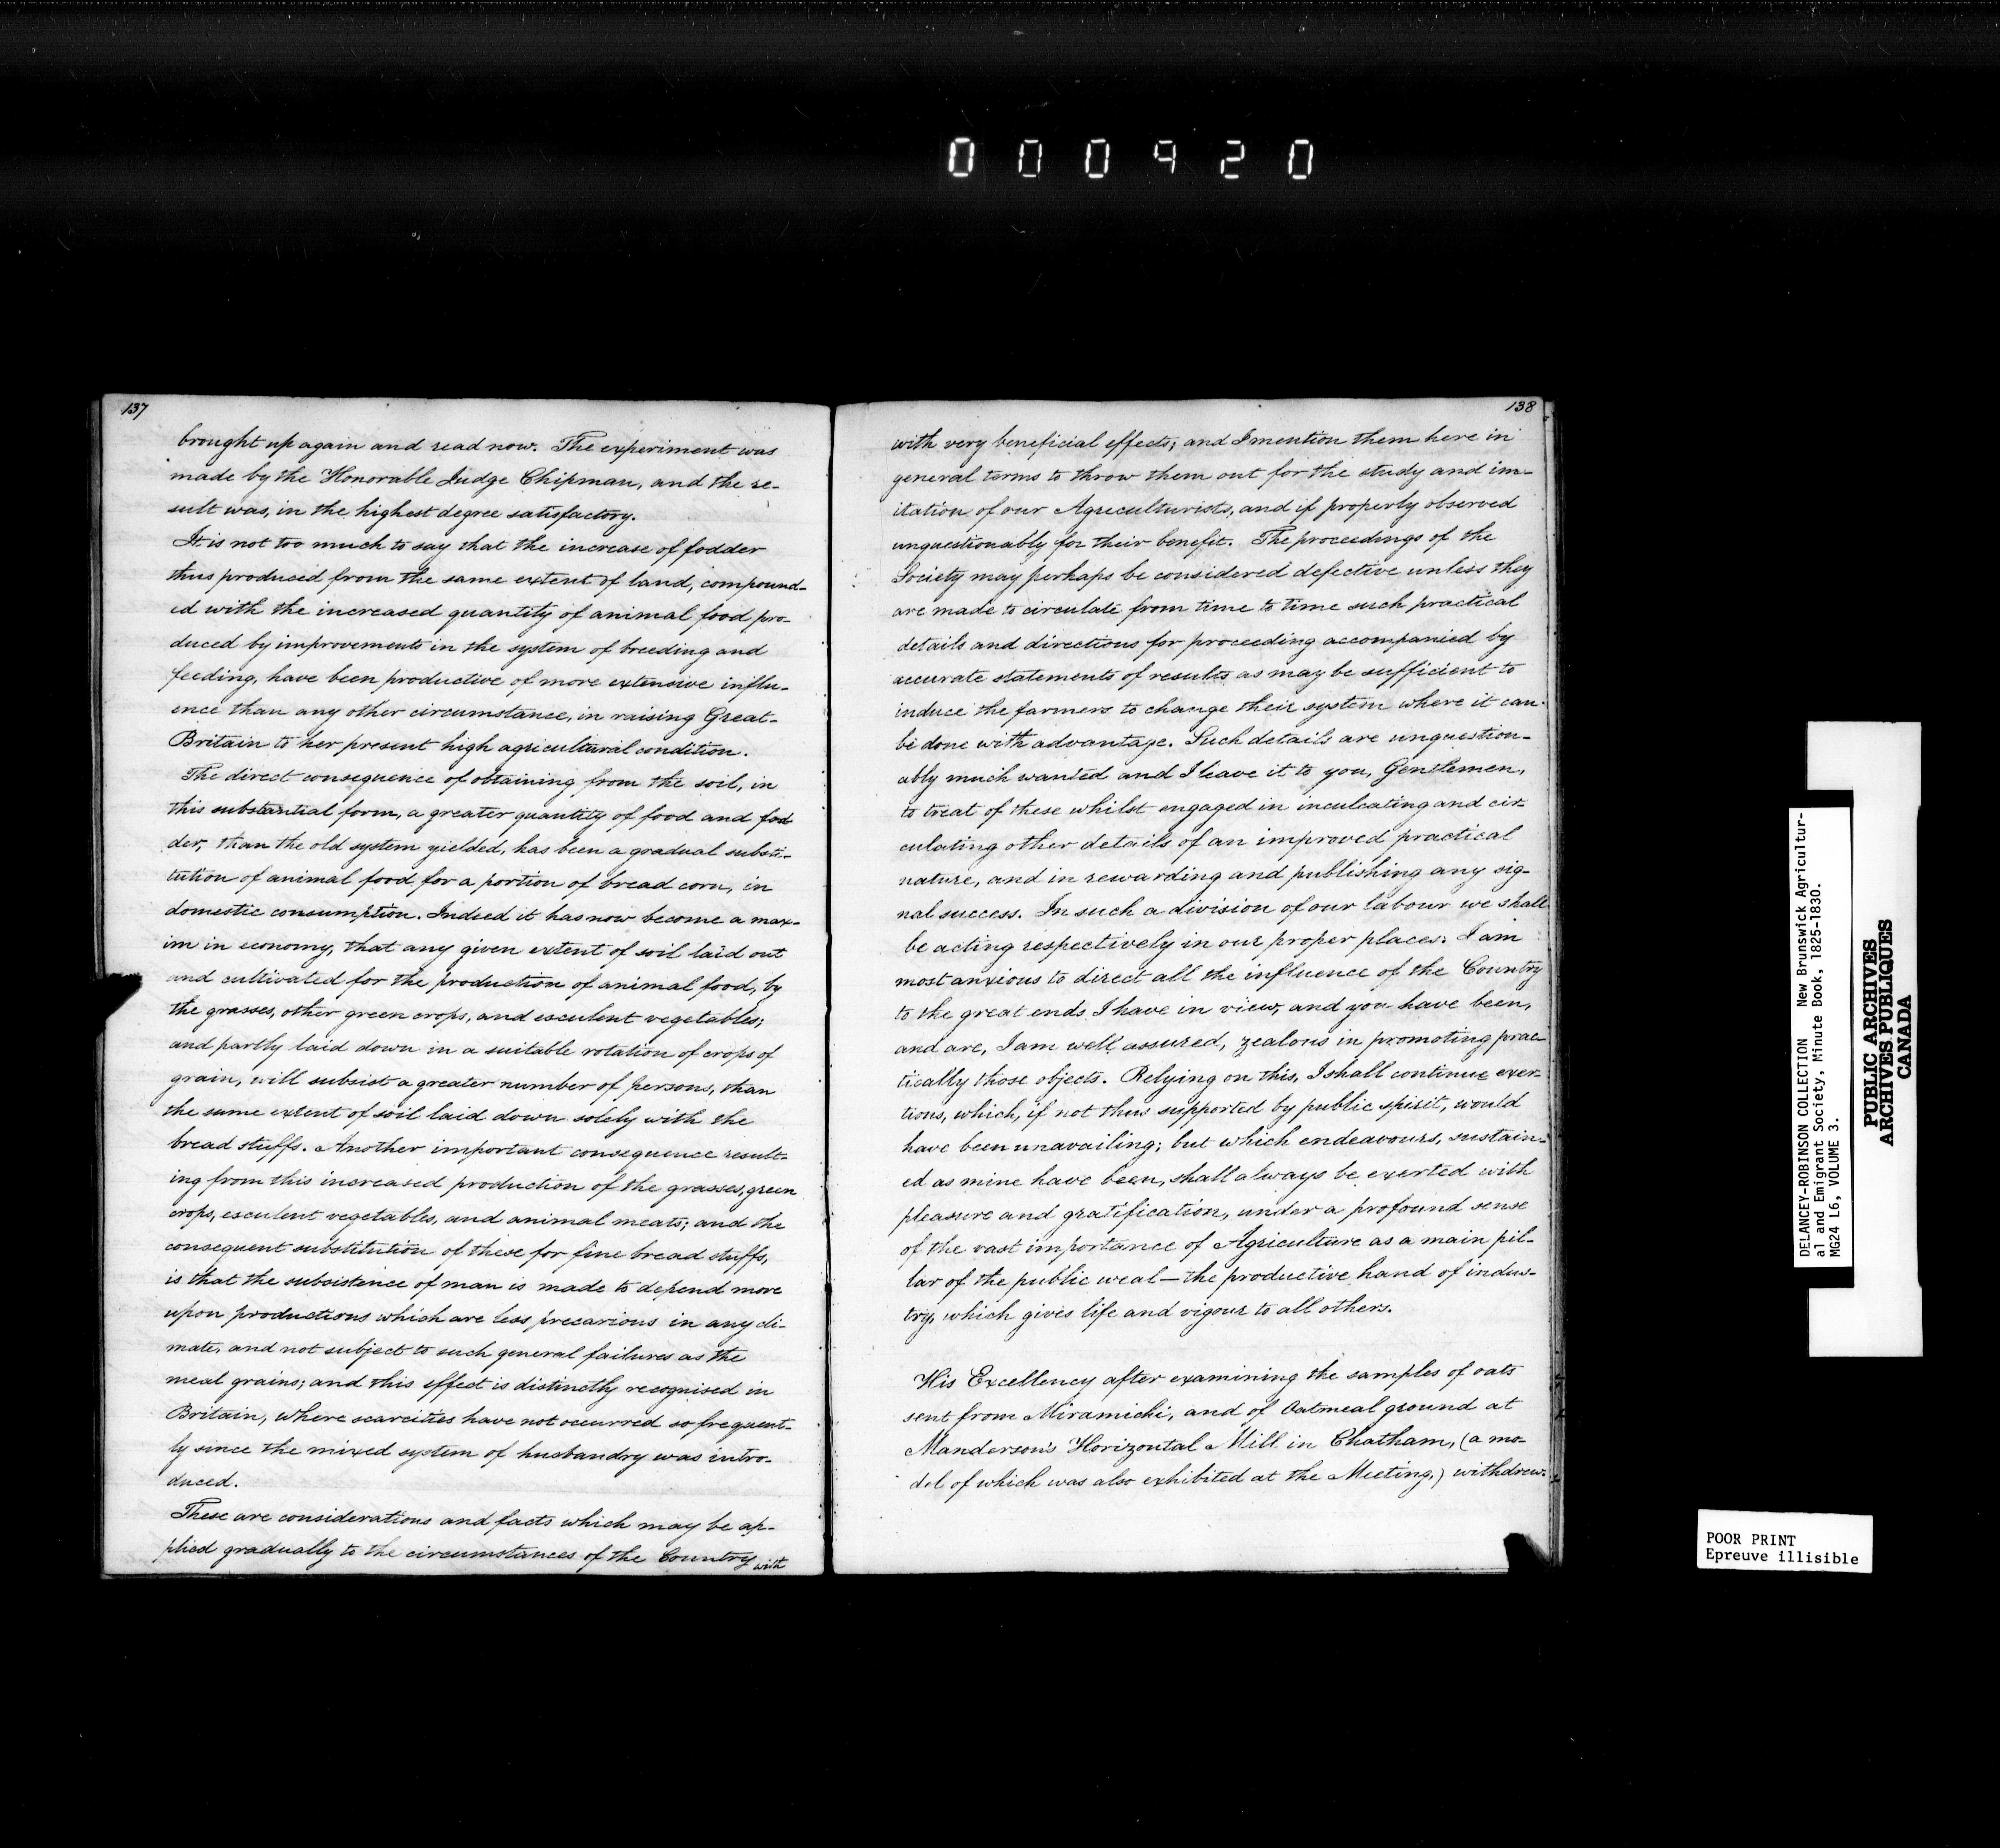 000420
137
brought up again and read now. The experiment was
made by the Honorable Judge Chipman, and the re-
sult was, in the highest degree satisfactory.
It is not too much to say that the increase of fodder
thus produced from the same extent of land, compound-
ed with the increased quantity of animal food pro-
duced by improvements in the system of breeding and
feeding, have been productive of more extensive influ-
ence than any other circumstance, in raising Great-
Britain to her present high agricultural condition.
The direct consequence of obtaining from the soil, in
this substantial form, a greater quantity of food and fod
der, than the old system yielded, has been a gradual substi-
tution of animal food for a portion of bread corn, in
domestic consumption. Indeed it has now become a max-
im in economy, that any given extent of soil laid out
and cultivated for the production of animal food, by
the grasses, other green crops, and esculent vegetables;
and partly laid down in a suitable rotation of crops of
grain, will subsist a greater number of persons, than
the same extent of soil laid down solely with the
bread stuffs. Another important consequence result-
ing from this increased production of the grasses, green
crops, esculent vegetables, and animal meats; and the
consequent substitution of these for fine bread stuffs,
is that the subsistence of man is made to depend more
upon productions which are less precarious in any cli-
mate, and not subject to such general failures as the
meal grains; and this effect is distinctly recognised in
Britain, where scarcities have not occurred so frequent-
ly since the mixed system of husbandry was intro-
duced.
These are considerations and facts which may be ap-
plied gradually to the circumstances of the Country
with
138
with very beneficial effects; and I mention them here in
general terms to throw them out for the study and im-
itation of our Agriculturists, and if properly observed
unquestionably for their benefit. The proceedings of the
Society may perhaps be considered defective unless they
are made to circulate from time to time such practical
details and directions for proceeding accompanied by
accurate statements of results as may be sufficient to
induce the farmers to change their system where it can
be done with advantage. Such details are unquestion-
ably much wanted and I leave it to you, Gentlemen,
to treat of these whilst engaged in inculcating and cir-
culating other details of an improved practical
nature, and in rewarding and publishing any sig-
nal success. In such a division of our labour we shall
be acting respectively in our proper places: I am
most anxious to direct all the influence of the Country
to the great ends I have in view, and you have been,
and are, I am well assured, zealous in promoting prac-
tically those objects. Relying on this, I shall continue exer-
tions, which, if not thus supported by public spirit, would
have been unavailing; but which endeavours, sustain-
ed as mine have been, shall always be exerted with
pleasure and gratification, under a profound sense
of the vast importance of Agriculture as a main pil-
lar of the public weal — the productive hand of indus-
try, which gives life and vigour to all others.
His Excellency after examining the samples of oats
sent from Miramichi, and of Oatmeal ground at
Manderson's Horizontal Mill in Chatham, (a mo-
del of which was also exhibited at the Meeting,) withdrew.
DELANCEY-ROBINSON COLLECTION New Brunswick Agricultur-
al and Emigrant Society, Minute Book, 1825-1830.
MG24 L6, VOLUME 3.
PUBLIC ARCHIVES
ARCHIVES PUBLIQUES
CANADA
POOR PRINT
Epreuve illisible